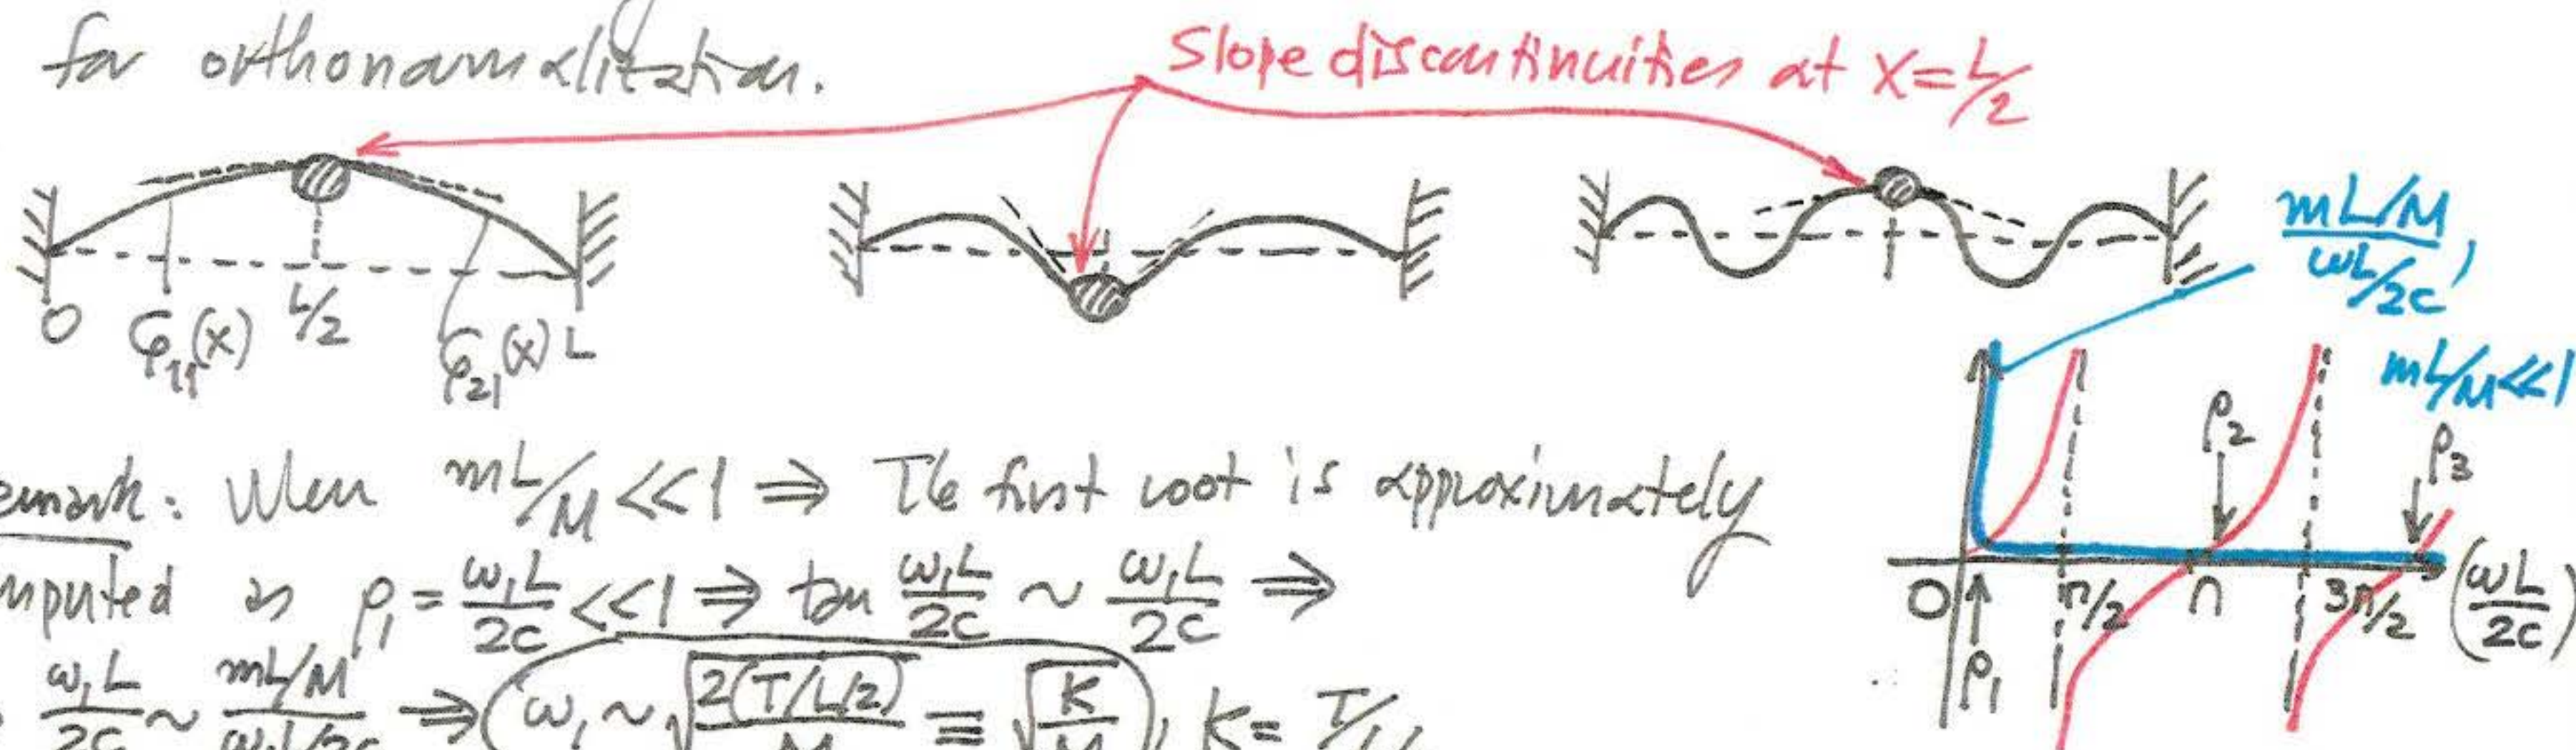 for orthonormalization.
Slope discontinuities at x=L/2
0 φ₁₁(x) L/2 φ₂₁(x) L
mL/M / ωL/2c ,
mL/M<<1
ρ₂
ρ₃
emark: When mL/M <<1 ⇒ The first root is approximately
mputed as ρ₁ = ω₁L/2c <<1 ⇒ tan ω₁L/2c ~ ω₁L/2c ⇒
0 π/2 π 3π/2 (ωL/2c)
ρ₁
ω₁L/2c ~ mL/M / ω₁L/2c ⇒ ω₁ ~ √(2(T/L/2)/M) ≡ √(K/M), K= T/